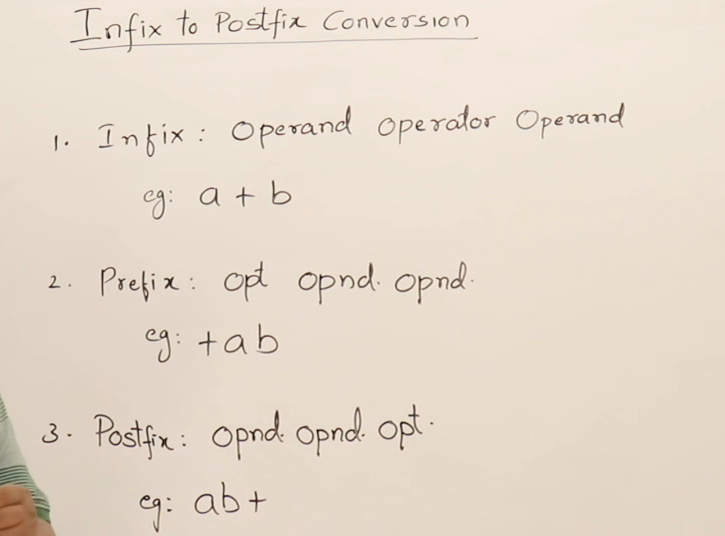 Infix to Postfix Conversion
1. Infix: Operand Operator Operand
eg: a + b
2. Prefix: opt opnd. opnd.
eg: +ab
3. Postfix: opnd. opnd. opt.
eg: ab+